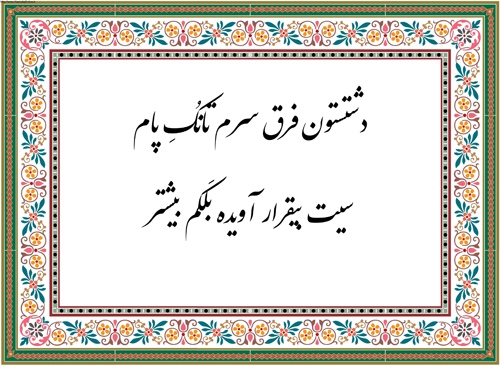 دشتستون فرق سرم تانُکِ پام
سیت بیقرار آویده بَلکم بیشتر